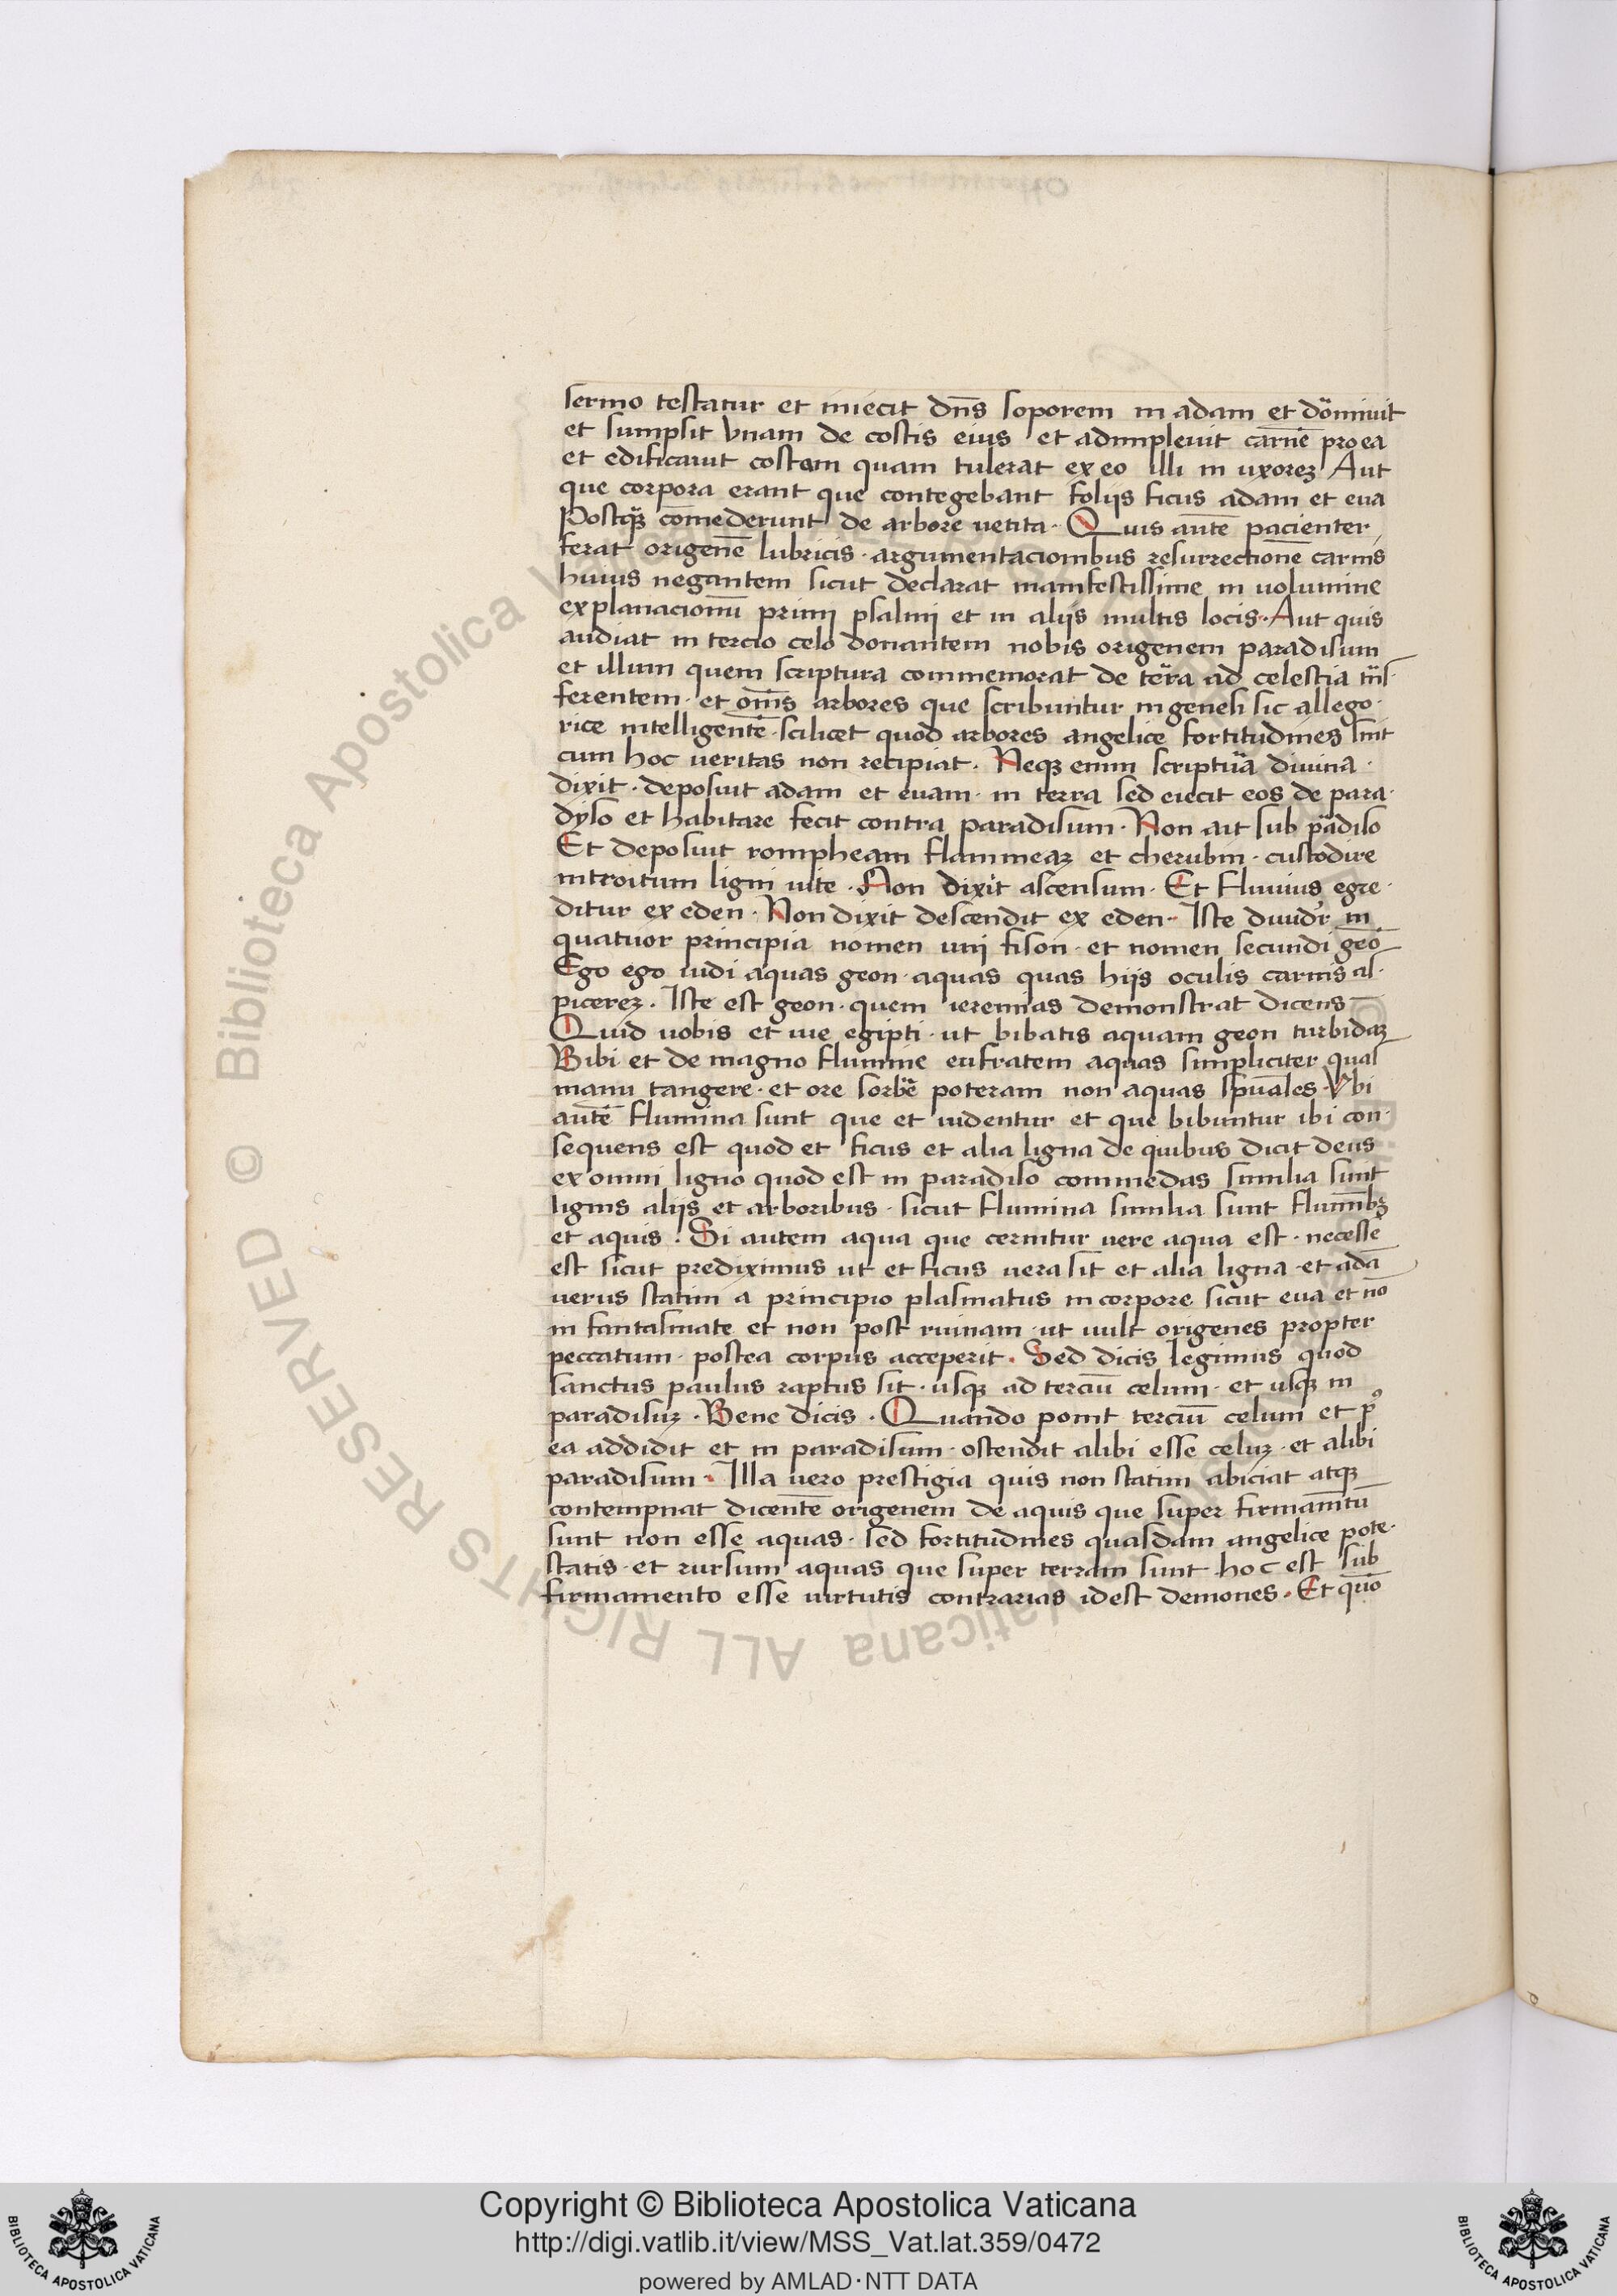 sermo testatur et iniecit dn̄s soporem in adam et dormiuit
et sumpsit vnam de costis eius et adimpleuit carnē pro ea
et edificauit costam quam tulerat ex eo illi in uxoreꝫ Aut
que corpora erant que contegebant folijs ficus adam et eua
Postqꝫ cōmederunt de arbore uetita · Quis autē pacienter
ferat origenē lubricis · argumentacionibus resurrectionē carnis
huius negantem sicut declarat manifestissime in uolumine
explanacionū primi psalmi et in alijs multis locis · Aut quis
audiat in tercio celo donantem nobis origenem paradisum
et illum quem scriptura commemorat de terra ad celestia trās·
ferentem · et om̄s arbores que scribuntur in genesi sic allego·
rice intelligentē · scilicet quod arbores angelice fortitudines sint
cum hoc ueritas non recipiat · Neqꝫ enim scriptura diuina ·
dixit · deposuit adam et euam · in terra sed eiecit eos de para·
dyso et habitare fecit contra paradisum · Non ait sub pradiso
Et deposuit rompheam flammeaꝫ et cherubin · custodire
introitum ligni uite · Non dixit ascensum · Et fluuius egre·
ditur ex eden · Non dixit descendit ex eden · Iste diuidr̄ in
quatuor principia nomen uni fison · et nomen secundi geō
Ego ego uidi aquas geon · aquas quas hijs oculis carnis as·
picereꝫ · Iste est geon · quem ieremias demonstrat dicens
Quid uobis et uie egipti · ut bibatis aquam geon turbidaꝫ
Bibi · et de magno flumine eufratem aquas simpliciter quas
manu tangere · et ore sorbē poteram non aquas spūales · Vbi
autē flumina sunt que et uidentur et que bibuntur ibi con·
sequens est quod et ficus et alia ligna de quibus dicit deus
ex omni ligno quod est in paradiso commedas similia sunt
lignis alijs et arboribus · sicut flumina similia sunt flumībꝫ
et aquis · Si autem aqua que cernitur uere aqua est · necesse
est sicut prediximus ut et ficus uera sit et alia ligna · et adā
uerus statim a principio plasmatus in corpore sicut eua et nō
in fantasmate et non post ruinam · ut uult origenes propter
peccatum · postea corpus acceperit · Sed dicis legimus quod
sanctus paulus raptus sit · usqꝫ ad terciū celum · et usqꝫ in
paradisuꝫ · Bene dicis · Quando ponit terciū celum et pꝰ
ea addidit et in paradisum · ostendit alibi esse celuꝫ · et alibi
paradisum · Illa uero prestigia quis non statim abiciat atqꝫ
contempnat dicentē origenem de aquis que super firmamētū
sunt non esse aquas · sed fortitudines quasdam angelice pote·
statis · et rursum aquas que super terram sunt hoc est sub
firmamento esse uirtutis contrarias idest demones · Et quō
Copyright © Biblioteca Apostolica Vaticana
http://digi.vatlib.it/view/MSS_Vat.lat.359/0472
powered by AMLAD·NTT DATA